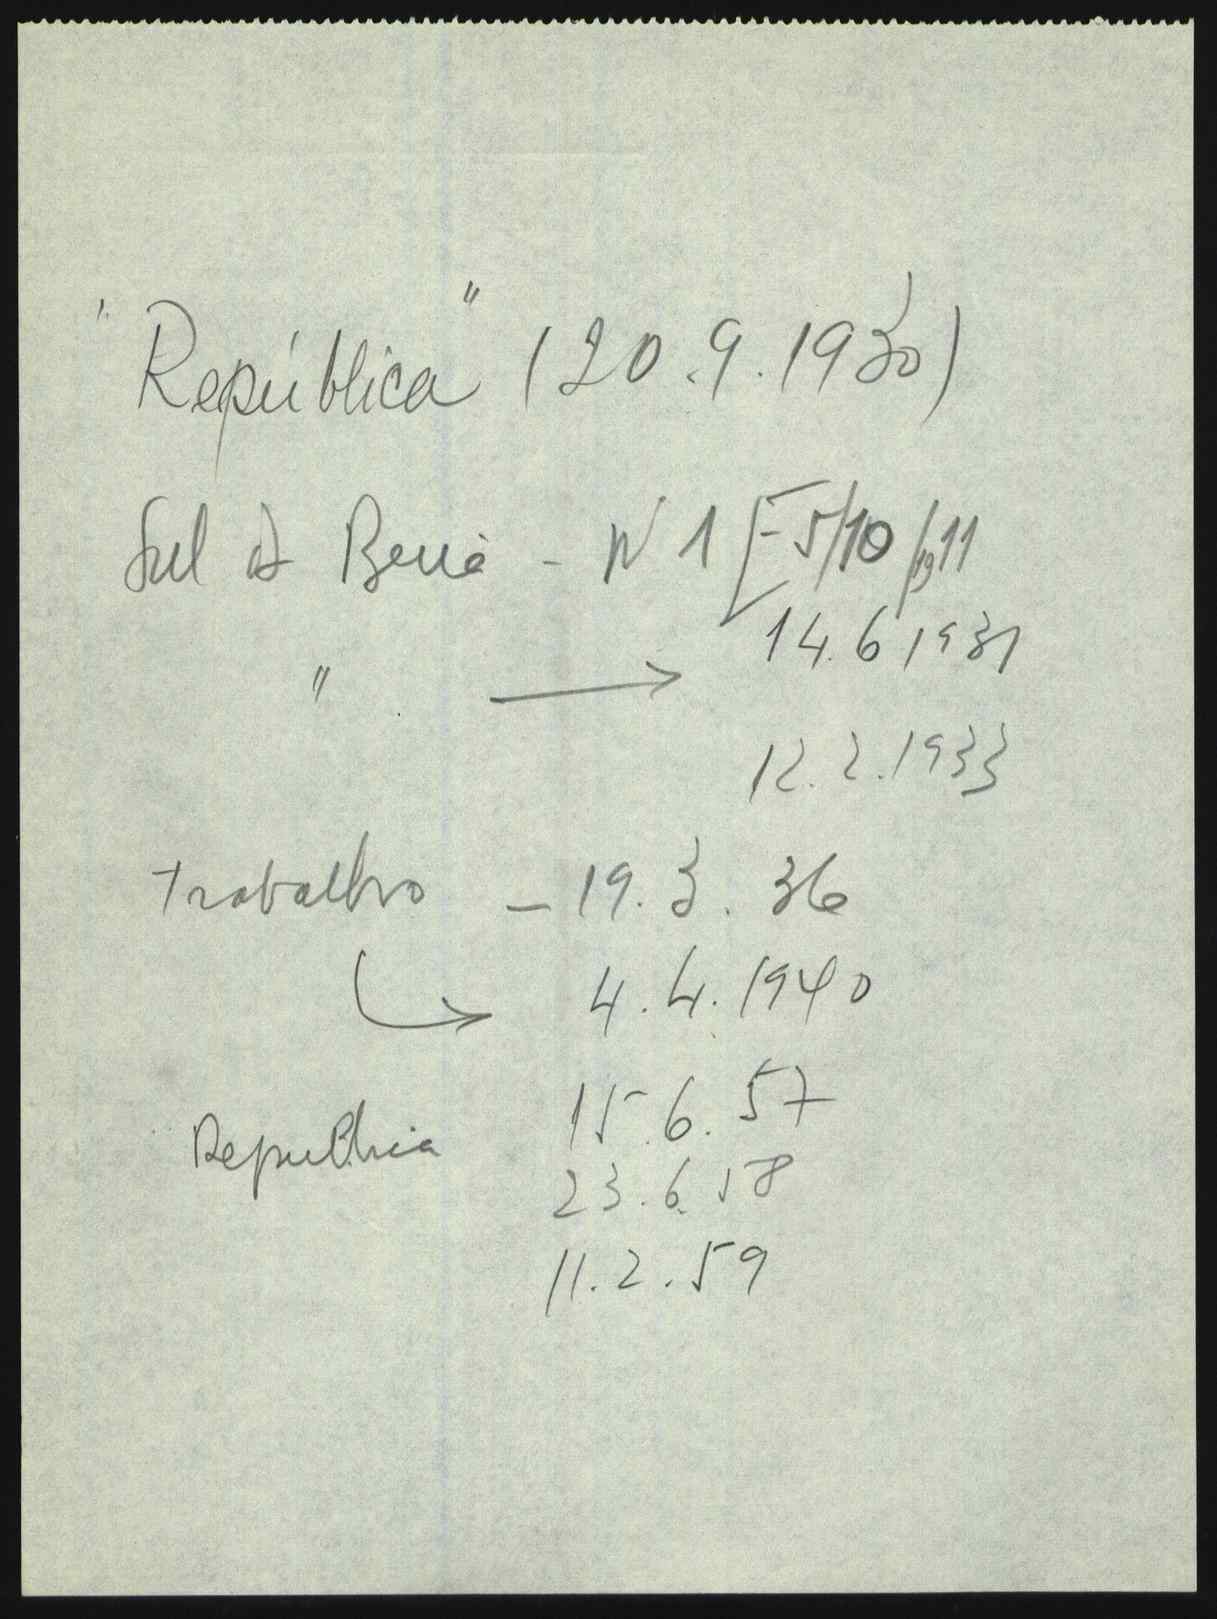 "República" (20.9.1930)
Sul da Beira - Nº 1 [- 5/10/1911
14.6 1931
" →
12.2.1933
Trabalho - 19.3.36
4.4.1940
Republica 15.6.57
23.6.58
11.2.59